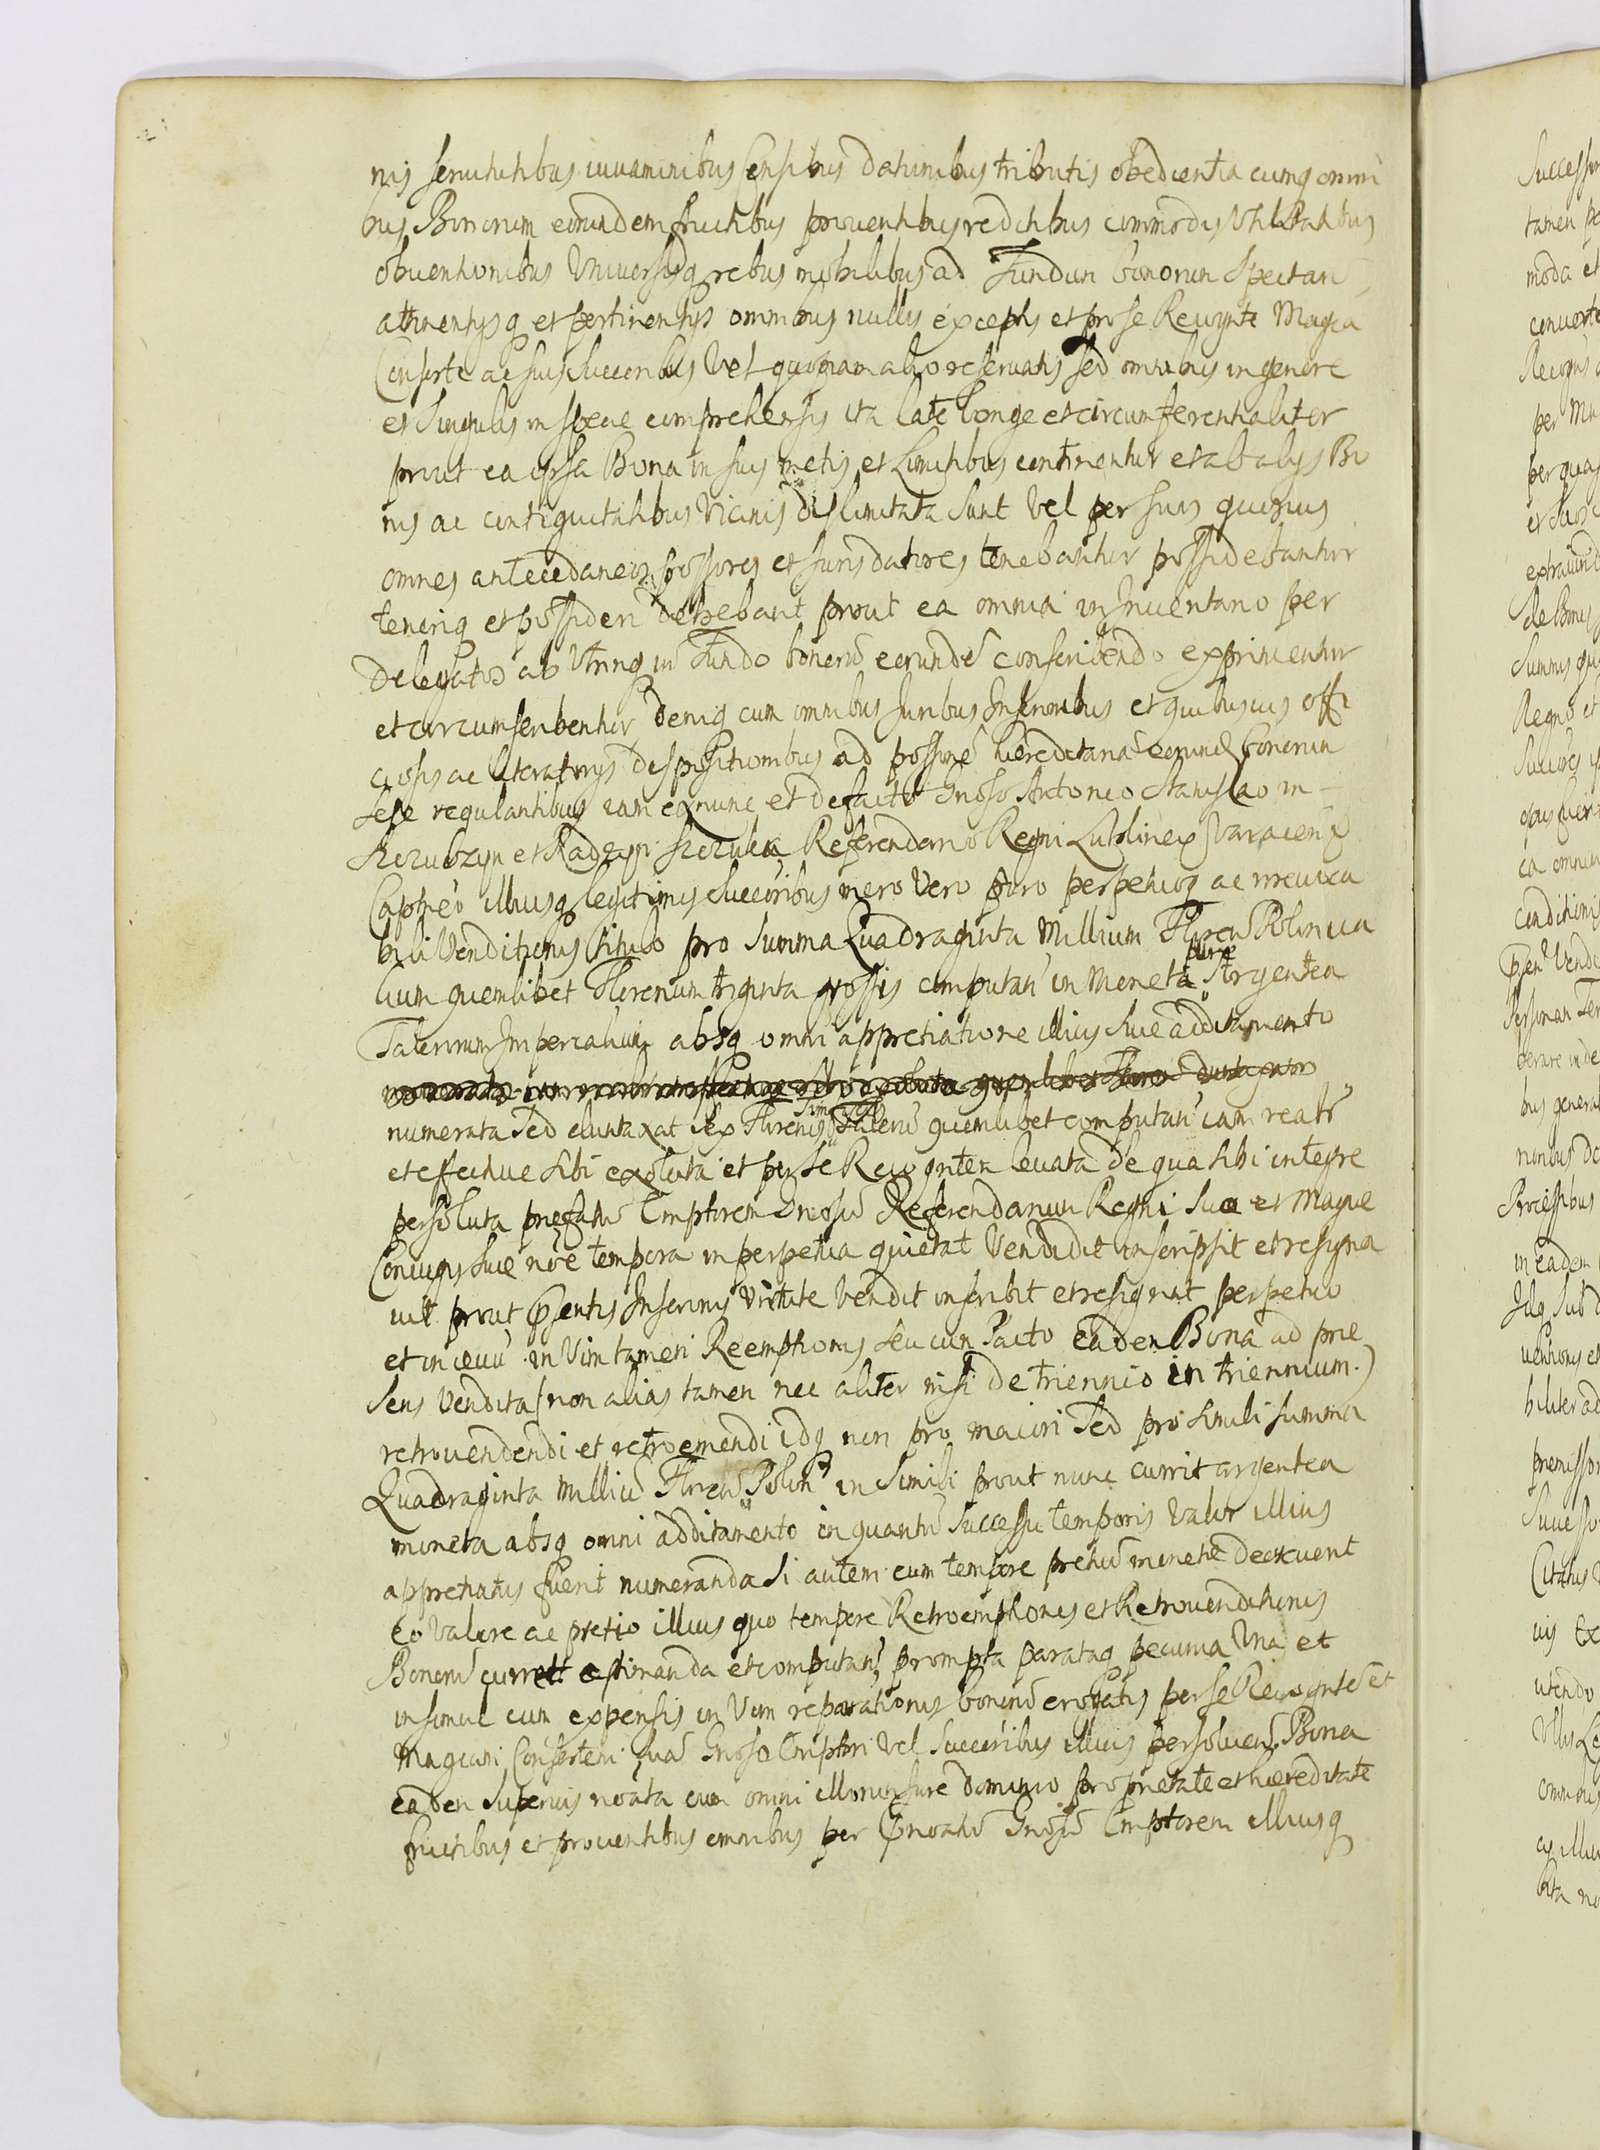 nis servitutibus iuvaminibus Censibus dationibus tributis obedientia cumq omni
bus Bonorum eorundem fructibus proventibus redditibus commodis Utilitatibus
obventionibus Universisq rebus mobilibus ad Fundum bonorum Spectan
attinentijsq et pertinentijs omnibus nullis exceptis et pro se Recognte Magca
Consorte ac suis Succoribus Vel quopiam alio reservatis Sed omnibus in genere
et Singulis in specie comprehensis ita late longe et circumferentialiter
prout ea ipsa Bona in suis metis et Limitibus continentur et ab alijs Bo
nis ac contiguitatibus Vicinis dislimitata Sunt Vel per suos quosvis
omnes antecedaneos possores et Juris datores tenebantur possidebantur
teneriq et possideri debebant prout ea omnia in Inventario per
Delegatos ab Utrinq in Fundo bonorũ eorundẽ conscribendo exprimentur
et circumscribentur deniq cum omnibus Juribus Inscrionibus et quibusvis offi
ciosis ac literatorijs dispositionibus ad possionẽ hæreditariã eorund bonorum
sese regulantibus iam exnunc et de facto Gnoso Antonio Stanislao in
Szczubzyn et Radzyn Szczuka Referendario Regni Lublinen Varecen
Capneo illiusq legitimis Succoribus mero Vero puro perpetuoq ac irrevoca
bili Venditionis titulo pro Summa Quadraginta Millium Floren Polonica
lium quemlibet Florenum triginta grossis computan in Moneta pure Argentea
Talerorum Imperialium absq omni appretiatione illius sive additamento
numerata Sed duntaxat sex Florenis Talerũ quemlibet computan iam realr
et effective sibi exoluta et per se Recognten levata de qua sibi integre
persoluta prefatũ Emptorem Gnosũ Referendarium Regni Suo et Magce
Coniugis Suæ noẽ tempora in perpetua quietat Vendidit inscripsit et resigna
vit prout Psentis Inscrionis Virtute Vendit inscribit et resignat perpetuo
et in ævũ in Vim tamen Reemptionis seu cum Pacto eadem Bona ad præ
sens Vendita (non alias tamen nec aliter nisi de triennio in triennium.)
retrovendendi et retroemendi idq non pro maiori Sed pro simili Summa
Quadraginta Milliũ Floren Polon in Simili prout nunc currit argentea
moneta absq omni additamento in quantũ Successu temporis Valor illius
appretiatus fuerit numeranda Si autem cum tempore pretiũ monetæ decreverit
eo Valore ac pretio illius quo tempore Retroemptionis et Retrovenditionis
Bonorũ curret estimanda et computan prompta parataq pecunia Una et
insimul cum expensis in Vim reparationis bonorũ erogatis per se Recogntẽ et
Magcam Consortem suã Gnoso Emptori Vel Succoribus illius persolven Bona
eadem Superius noata cum omni illorum Jure dominio proprietate et hæreditate
fructibus et proventibus omnibus per Pnoatũ Gnosũ Emptorem illiusq
Successor
tamen pe
moda et
converte
Recogns
per Ma
per quas
et Succ
de Bonis
Summis qu
Regno et
ea omnia
conditionis
bus general
nonibus de
Processibus
in eadem
Idq sub
ventionis et
biliter ad
premissor
Successo
Citatus
vis Ex
utendo
omnibus
bita no